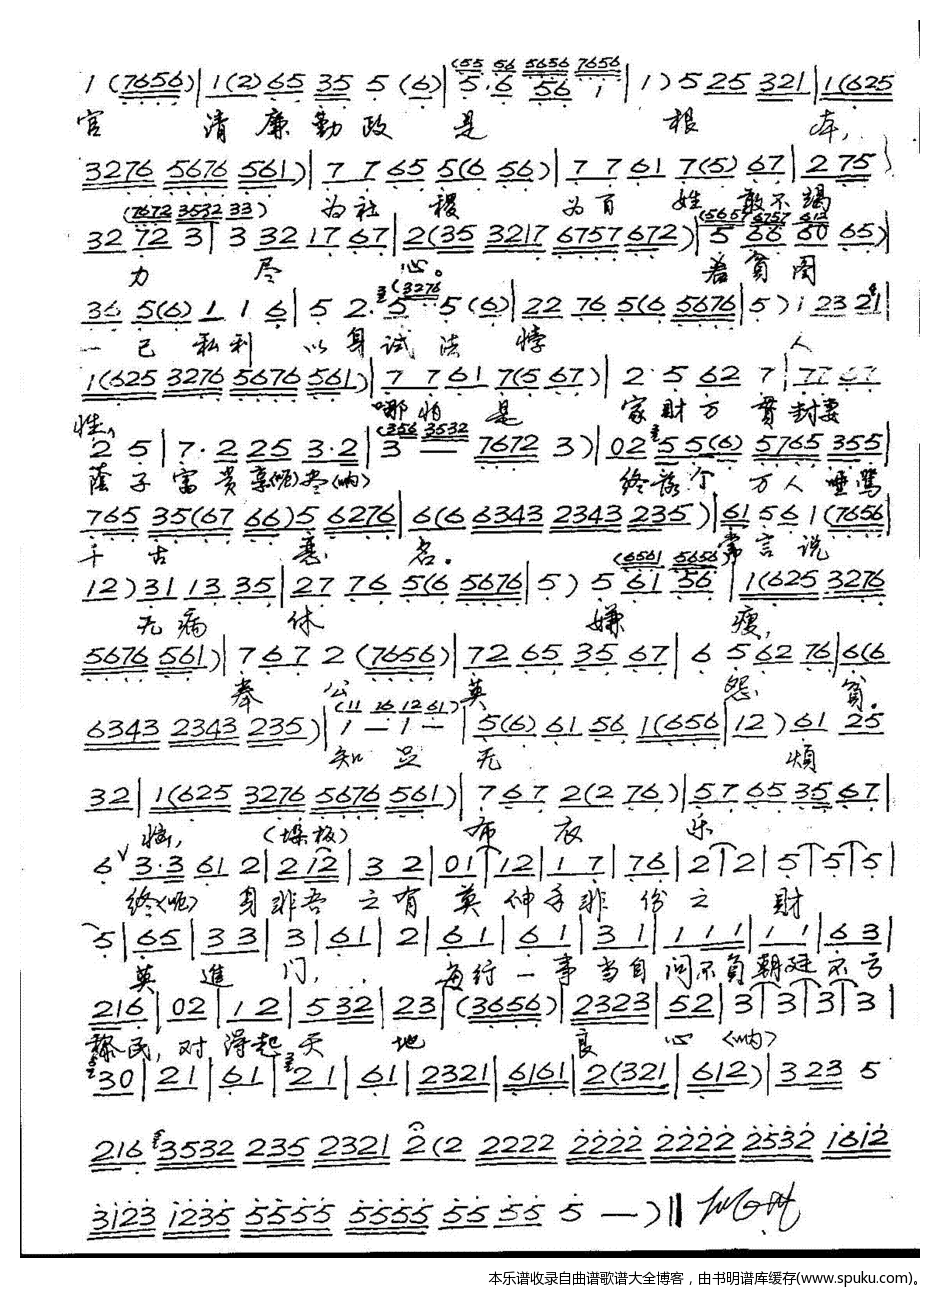 1 (7656) | 1(2) 65 35 5 (6) | 5·6 56 i | 1) 5 25 321 | 1(625
官 清廉勤政 是 根 本,
3276 5676 561) | 7 7 65 5(6 56) | 7 7 61 7(5) 67 | 2 75
为社 稷 为百 姓 敢不竭
32 72 3 | 3 32 17 67 | 2(35 3217 6757 672) | 5 66 60 65)
力 尽 心。 若贪图
36 5(6) 1 1 6 | 5 2· 5 5 (6) | 22 76 5(6 5676 | 5) i 23 21
一己私利 以身试法 悖 人
1(625 3276 5676 561) | 7 7 61 7(5 67) | 2·5 62 7 | 77 67
性, 哪怕 是 家财万贯封妻
2 5 | 7·2 25 3·2 | 3 — 7672 3) | 02 5 5(6) 5765 355
荫子富贵享(呃)尽(呐) 终落个 万人唾骂
765 35(67 66)5 6276 | 6(6 6343 2343 235) | 61 5 6 1 (7656
千古 名。 常言说
12) 31 13 35 | 27 76 5(6 5676 | 5) 5 61 56 | 1(625 3276
无病 休 嫌 瘦,
5676 561) | 7 67 2 (7656) | 72 65 35 67 | 6 5 62 76 | 6(6
奉公 莫 怨 贫。
6343 2343 235) | 1 — 1 — | 5(6) 61 56 1(656 | 12) 61 25
知足 无 烦
32 | 1(625 3276 5676 561) | 7 67 2(2 76) | 57 65 35 67
恼, (垛板) 布衣 乐
6 3·3 61 2 | 2 12 | 3 2 | 01 | 12 | 1 7 | 76 | 2 | 2 | 5 | 5 | 5
终(呃) 身非吾之有莫伸手非份之 财
5 | 65 | 33 | 3 | 61 | 2 | 61 | 61 | 31 | 1 11 | 11 | 63
莫進门, 每行一事当自问不负朝廷不亏
216 | 02 | 12 | 5 32 | 23 | (3656) | 2323 | 52 | 3 | 3 | 3 | 3
黎民,对得起天 地 良 心(呐)
30 | 21 | 61 | 21 | 61 | 2321 | 6161 | 2(321 | 612) | 3 23 5
216 3532 235 2321 2(2 2222 2222 2222 2532 1612
3123 1235 5555 5555 55 55 5 —)‖
本乐谱收录自曲谱歌谱大全博客，由书明谱库缓存(www.spuku.com)。